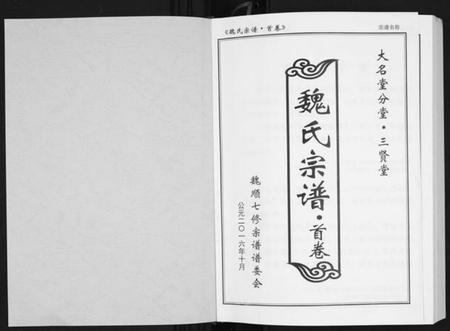 《魏氏宗谱·首卷》
宗谱名称
大名堂分堂·三贤堂
魏氏宗谱·首卷
魏顺七修宗谱谱委会
公元二〇一六年十月